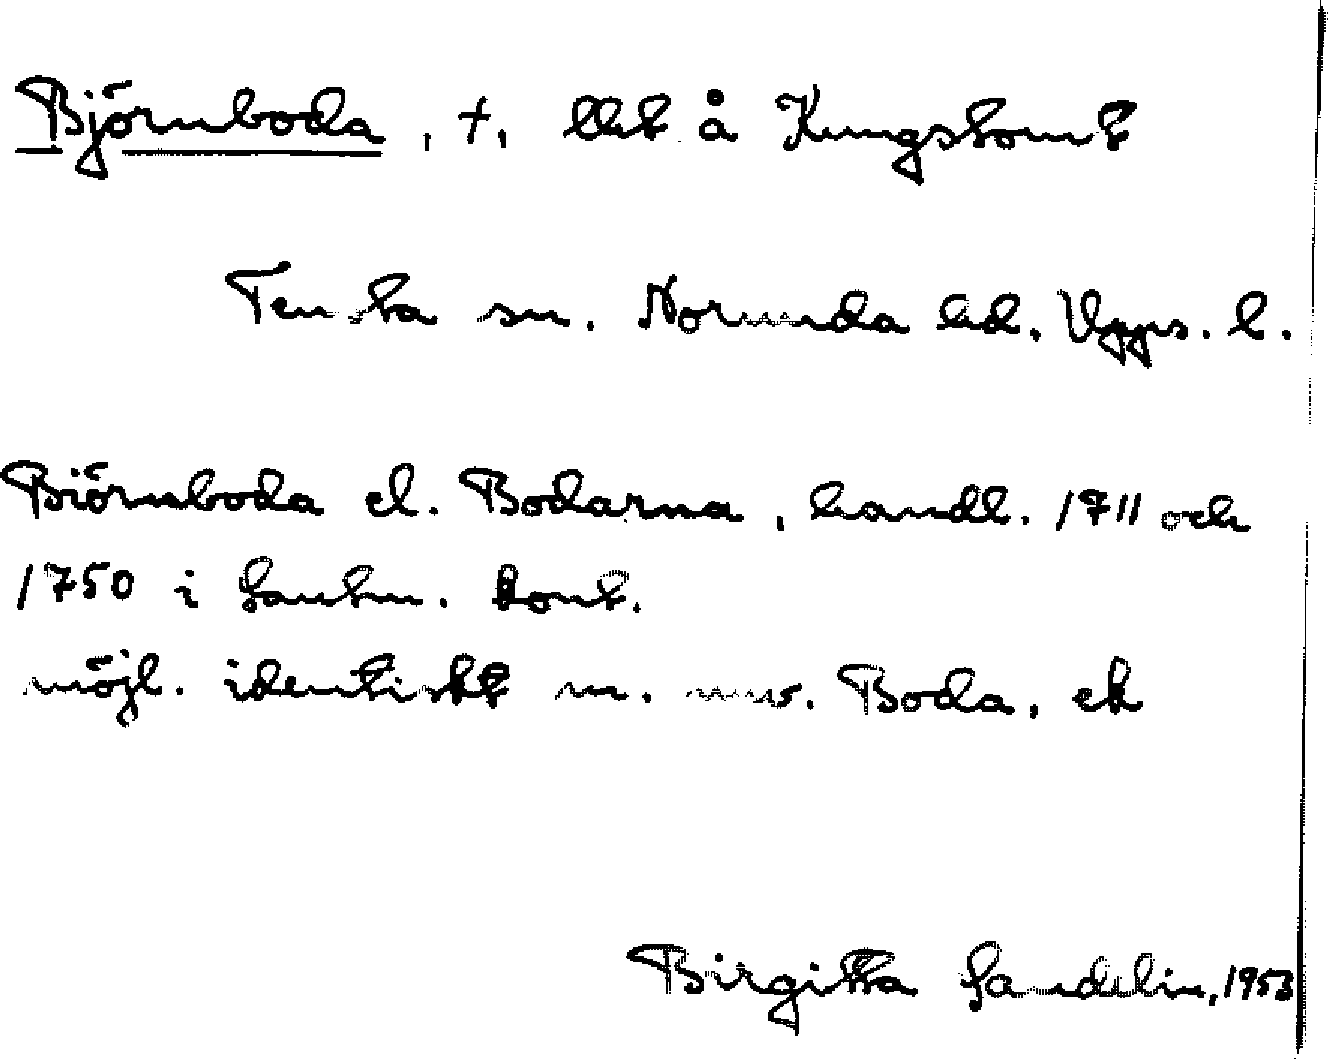 Björnboda, †, lht å Kungstomt
Tensta sn. Norunda hd. Upps. l.
Biörnboda el. Bodarna, handl. 1711 och
1750 i Lantm. kont.
möjl. identiskt m. nuv. Boda, ek
Birgitta Sandelin, 1953